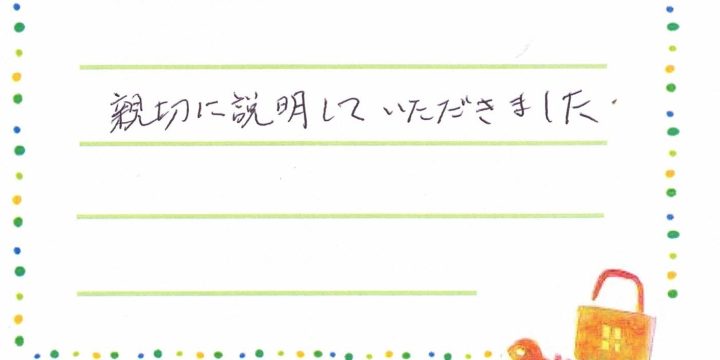 親切に説明していただきました.